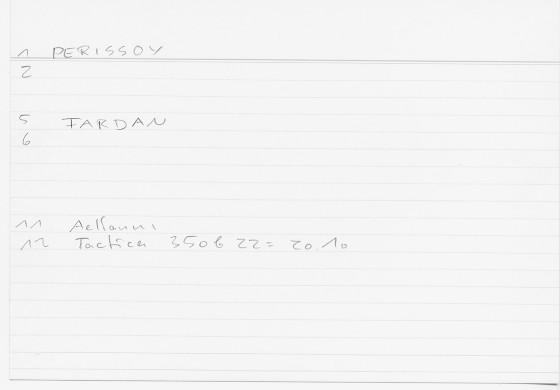 1 PERISSOY
2
5 FARDAN
6
11 Aelianni
12 Tactica 350 b 22 = 20.10